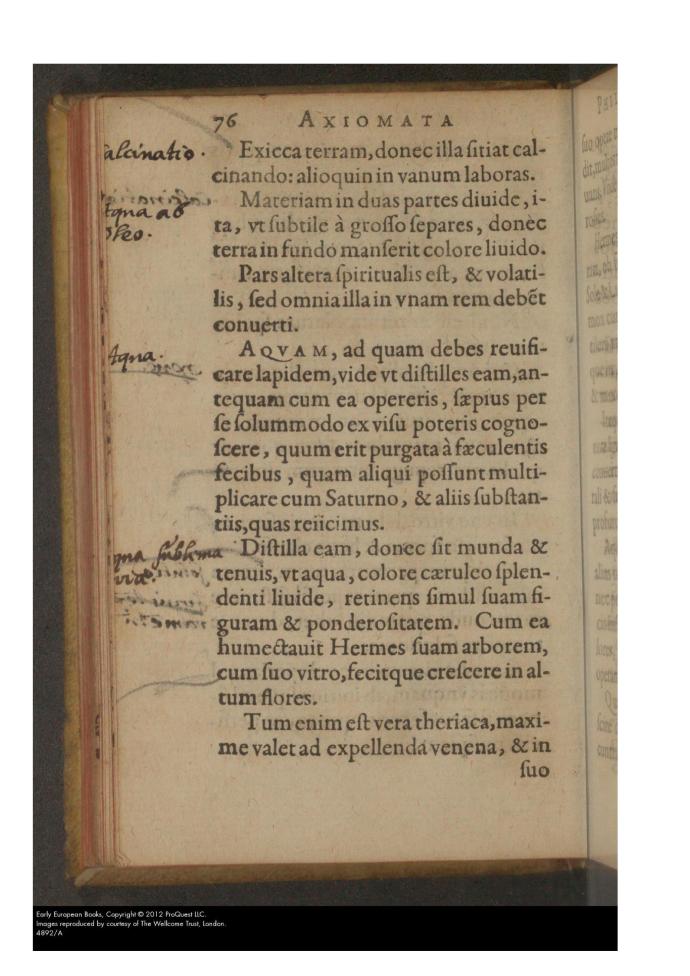 76 AXIOMATA
alcinatio.
Exicca terram, donec illa ſitiat cal-
cinando: alioquin in vanum laboras.
Aqua ab
oleo.
Materiam in duas partes diuide, i-
ta, vt ſubtile à groſſo ſepares, donec
terra in fundo manſerit colore liuido.
Pars altera ſpiritualis eſt, & volati-
lis, ſed omnia illa in vnam rem debẽt
conuerti.
Aqua.
AQVAM, ad quam debes reuifi-
care lapidem, vide vt diſtilles eam, an-
tequam cum ea opereris, ſæpius per
ſe ſolummodo ex viſu poteris cogno-
ſcere, quum erit purgata à fæculentis
fecibus, quam aliqui poſſunt multi-
plicare cum Saturno, & aliis ſubſtan-
tiis, quas reiicimus.
Diſtilla eam, donec ſit munda &
tenuis, vt aqua, colore cæruleo ſplen-
denti liuide, retinens ſimul ſuam fi-
guram & ponderoſitatem. Cum ea
humectauit Hermes ſuam arborem,
cum ſuo vitro, fecitque creſcere in al-
tum flores.
Tum enim eſt vera theriaca, maxi-
me valet ad expellenda venena, & in
ſuo
Early European Books, Copyright © 2012 ProQuest LLC.
Images reproduced by courtesy of The Wellcome Trust, London.
4892/A